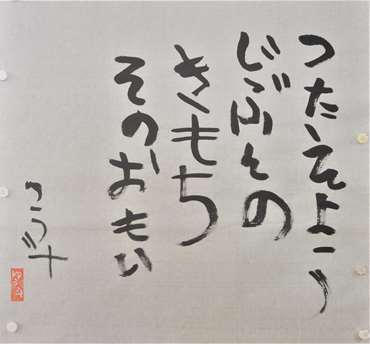 つたえよう
じぶんの
きもち
そのおもい